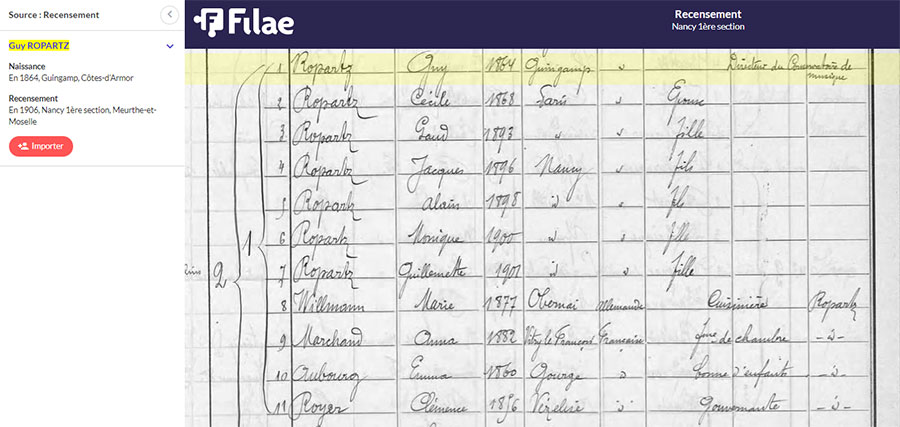 Source : Recensement
Guy ROPARTZ
Naissance
En 1864, Guingamp, Côtes-d'Armor
Recensement
En 1906, Nancy 1ère section, Meurthe-et-
Moselle
Importer
Filae
Recensement
Nancy 1ère section
1 Ropartz Guy 1864 Guingamp " Directeur du Conservatoire de
musique
2 Ropartz Cécile 1868 Paris " Epouse
3 Ropartz Gaud 1893 " " fille
4 Ropartz Jacques 1896 Nancy " fils
5 Ropartz Alain 1898 " " fils
6 Ropartz Monique 1900 " " fille
7 Ropartz Guillemette 1901 " " fille
8 Willmann Marie 1877 Obernai Allemande Cuisinière Ropartz
9 Marchand Anna 1882 Vitry le François Française fme de chambre -"-
10 Aubourg Emma 1860 " bonne d'enfants -"-
11 Royer Clémence Vézelise " Gouvernante -"-
2
1